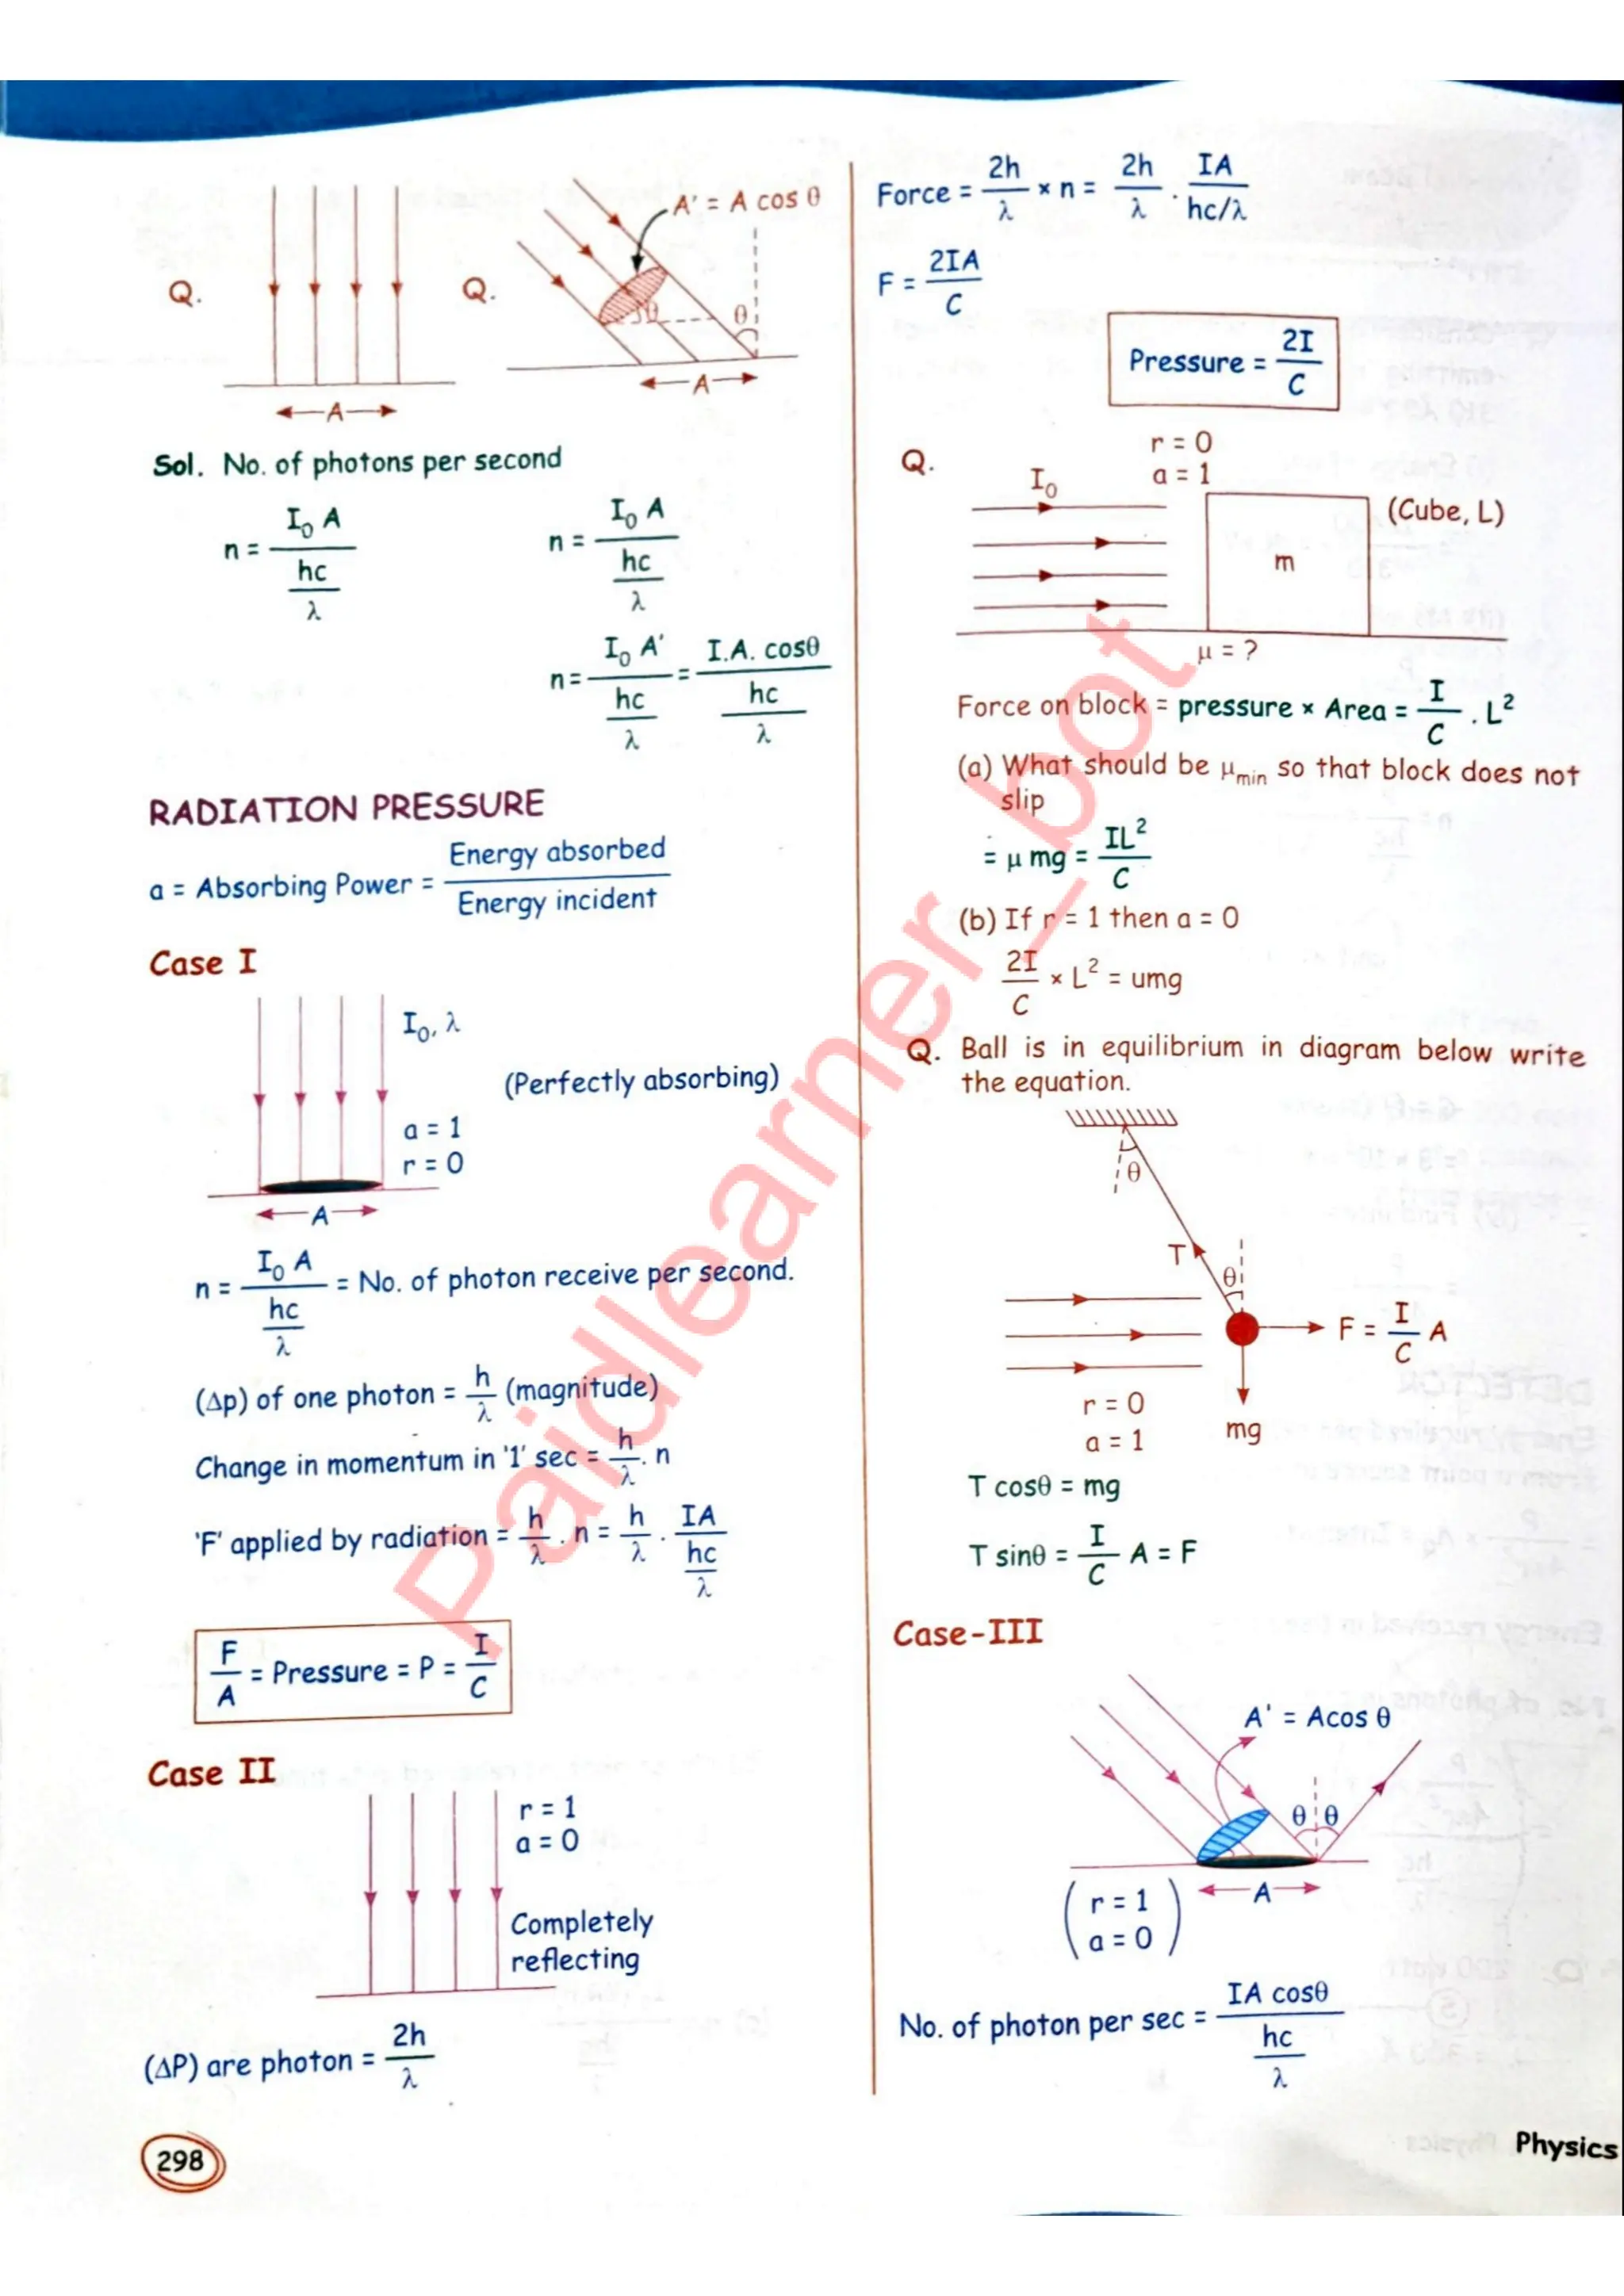 Q.
A
Q.
A' = A cos θ
θ
θ
A
Sol. No. of photons per second
n = I₀ A / (hc/λ)
n = I₀ A / (hc/λ)
n = I₀ A' / (hc/λ) = I.A. cosθ / (hc/λ)
RADIATION PRESSURE
a = Absorbing Power = Energy absorbed / Energy incident
Case I
I₀, λ
(Perfectly absorbing)
a = 1
r = 0
A
n = I₀ A / (hc/λ) = No. of photon receive per second.
(Δp) of one photon = h/λ (magnitude)
Change in momentum in '1' sec = h/λ . n
'F' applied by radiation = h/λ . n = h/λ . IA / (hc/λ)
F/A = Pressure = P = I/C
Case II
r = 1
a = 0
Completely
reflecting
(ΔP) are photon = 2h/λ
Force = 2h/λ × n = 2h/λ . IA / (hc/λ)
F = 2IA/C
Pressure = 2I/C
Q.
r = 0
a = 1
I₀
(Cube, L)
m
μ = ?
Force on block = pressure × Area = I/C . L²
(a) What should be μmin so that block does not
slip
= μ mg = IL²/C
(b) If r = 1 then a = 0
2I/C × L² = umg
Q. Ball is in equilibrium in diagram below write
the equation.
θ
T
θ
F = I/C A
r = 0
a = 1
mg
T cosθ = mg
T sinθ = I/C A = F
Case-III
A' = Acos θ
θ θ
A
r = 1
a = 0
No. of photon per sec = IA cosθ / (hc/λ)
298
Physics
Paidlearner_bot